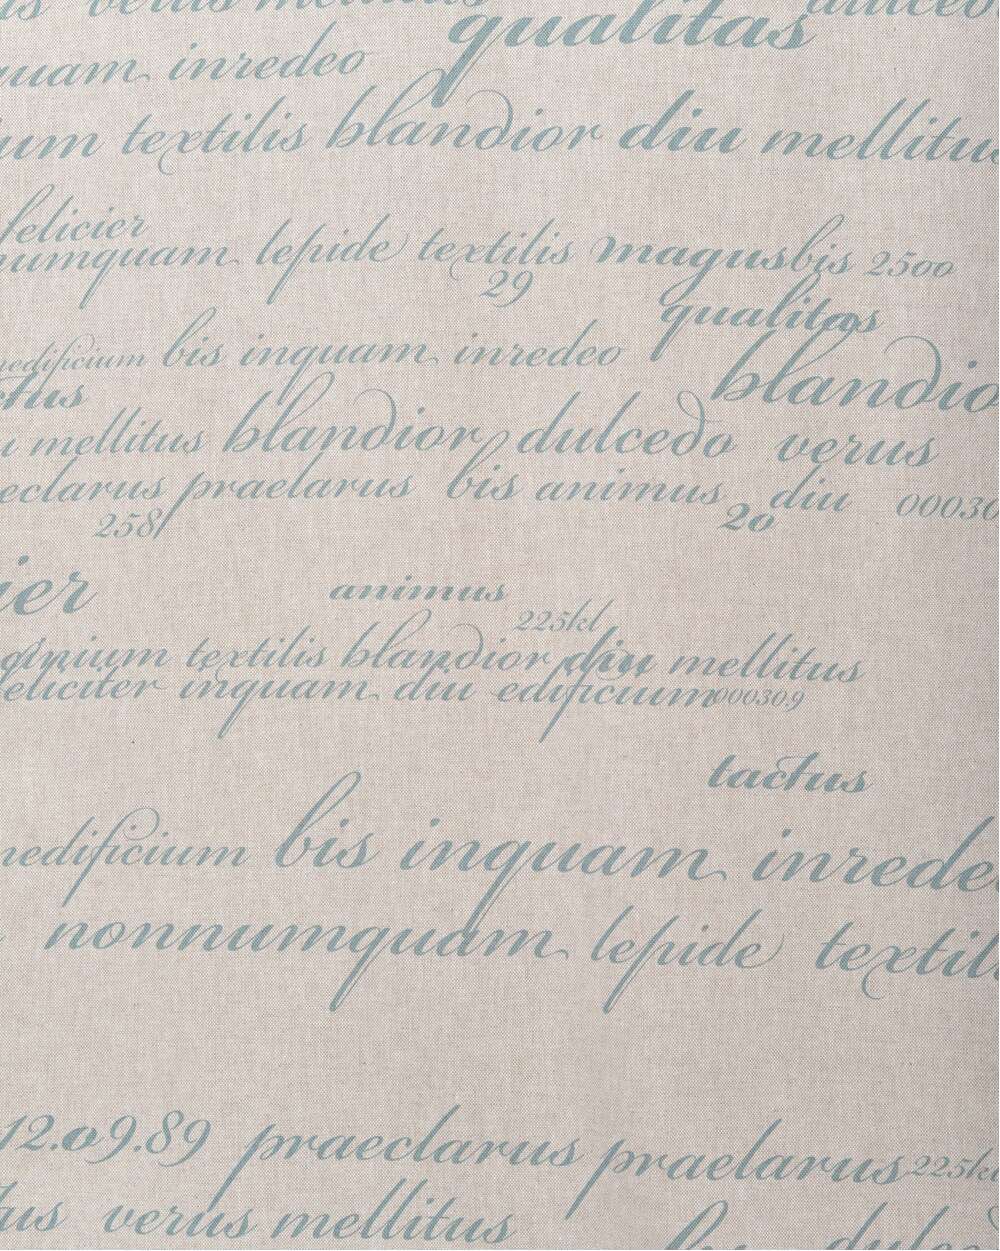 verus mellitus
qualitas dulcedo
inquam inredeo
textilis blandior diu mellitus
felicier
numquam lepide textilis magus bis 2500
29
qualitas
nedificium bis inquam inredeo
blandio
ctus
mellitus blandior dulcedo verus
eclarus praelarus bis animus diu 00030
258 20
ier
animus
225kl
ginium textilis blandior diu mellitus
eliciter inquam diu edificium 000309
tactus
nedificium bis inquam inrede
nonnumquam lepide textil
12.09.89 praeclarus praelarus 225kl
verus mellitus